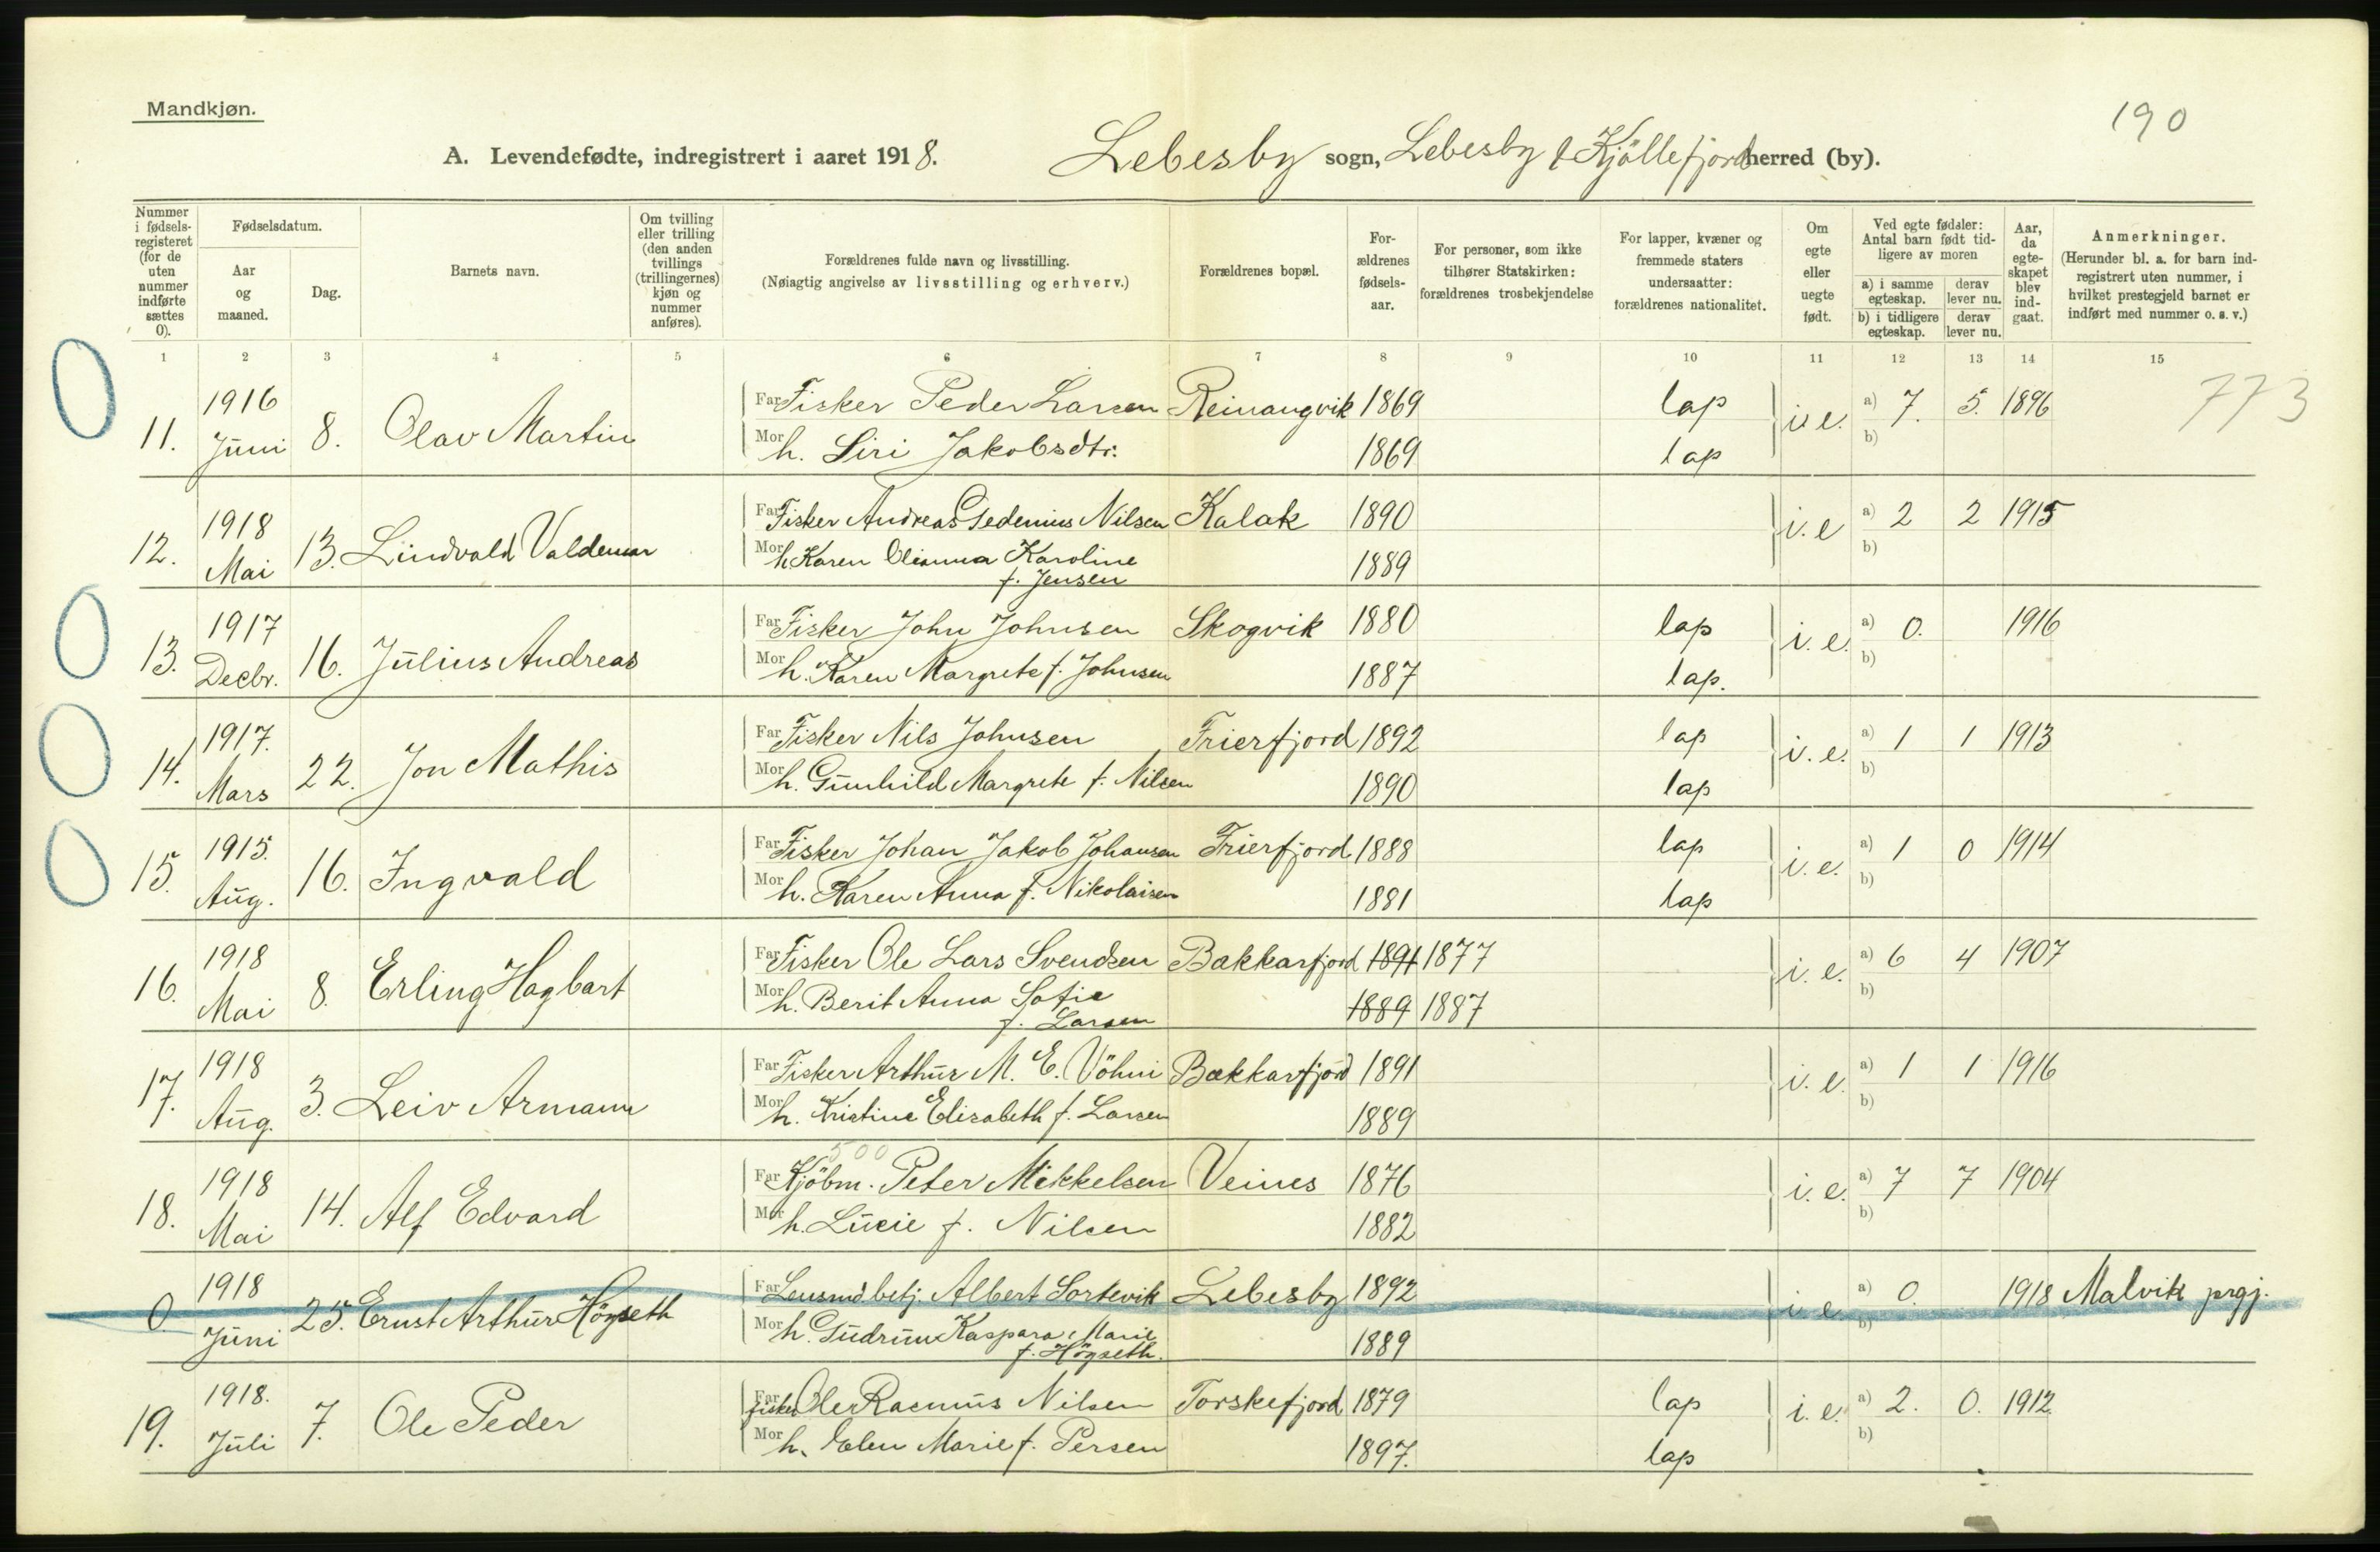 190
Mandkjøn.
A. Levendefødte, indregistrert i aaret 1918. Lebesby sogn, Lebesby & Kjöllefjord herred (by).
Nummer i fødsels-registeret (for de uten nummer indførte sættes 0).
Fødselsdatum.
Aar og maaned.
Dag.
Barnets navn.
Om tvilling eller trilling (den anden tvillings (trillingernes) kjøn og nummer anføres).
Forældrenes fulde navn og livsstilling.
(Nøiagtig angivelse av livsstilling og erhverv.)
Forældrenes bopæl.
For-ældrenes fødsels-aar.
For personer, som ikke tilhører Statskirken: forældrenes trosbekjendelse
For lapper, kvæner og fremmede staters undersaatter: forældrenes nationalitet.
Om egte eller uegte født.
Ved egte fødsler: Antal barn født tid-ligere av moren
a) i samme egteskap.
derav lever nu.
b) i tidligere egteskap.
derav lever nu.
Aar, da egte-skapet blev ind-gaat.
Anmerkninger.
(Herunder bl. a. for barn ind-registrert uten nummer, i hvilket prestegjeld barnet er indført med nummer o. s. v.)
1 2 3 4 5 6 7 8 9 10 11 12 13 14 15
0 11. 1916 Juni 8. Olav Martin Far Fisker Peder Larsen Reinangvik 1869 lap i. e. a) 7. 5. 1896 773
Mor h. Siri Jakobsdtr. 1869 lap b)
12. 1918 Mai 13. Lindvald Valdemar Far Fisker Andreas Gedenius Nilsen Kalak 1890 i. e a) 2 2 1915
Mor h. Karen Olianna Karoline f. Jensen 1889 b)
0 13. 1917 Decbr. 16. Julius Andreas Far Fisker John Johnsen Skogvik 1880 lap i. e. a) 0. 1916
Mor h. Karen Margrete f. Johnsen 1887 lap. b)
0 14. 1917. Mars 22. Jon Mathis Far Fisker Nils Johnsen Frierfjord 1892 lap i. e. a) 1 1 1913
Mor h. Gunhild Margrete f. Nilsen 1890 lap b)
0 15. 1915. Aug. 16. Ingvald Far Fisker Johan Jakob Johansen Frierfjord 1888 lap i. e. a) 1 0 1914
Mor h. Karen Anna f. Nikolaisen 1881 lap b)
16. 1918 Mai 8. Erling Hagbart Far Fisker Ole Lars Svendsen Bakkarfjord 1891 1877 i. e. a) 6 4 1907
Mor h. Berit Anna Sofie f. Larsen 1889 1887 b)
17. 1918 Aug. 3. Leiv Armann Far Fisker Arthur M. E. Vöhni Bekkarfjord 1891 i. e. a) 1 1 1916
Mor h. Kristine Elisabeth f. Larsen 1889 b)
500
18. 1918 Mai 14. Alf Edvard Far Kjöbm. Peter Mikkelsen Veines 1876 i. e. a) 7 7 1904
Mor h. Lucie f. Nilsen 1882 b)
0. 1918 Juni 25. Ernst Arthur Högseth Far Lensmdbetj. Albert Sortevik Lebesby 1892 i. e. a) 0. 1918 Malvik prgj.
Mor h. Gudrun Kaspara Marie f. Högseth. 1889 b)
19. 1918. Juli 7. Ole Peder Far fisker Ole Rasmus Nilsen Torskefjord 1879 lap i. e. a) 2. 0. 1912.
Mor h. Elen Marie f. Persen 1897. lap b)